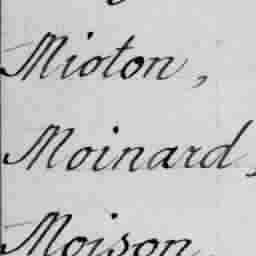 Mioton,
Moinard,
Moison,